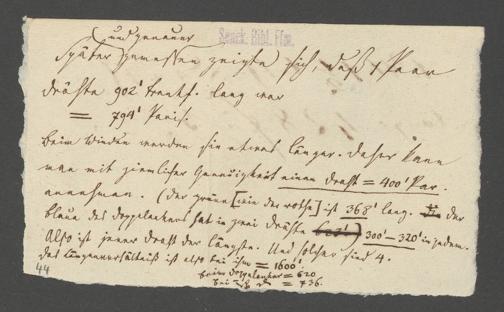 (und genauer
Senck. Bibl. Ffm.
später gemessen zeigte sich, daß 1 Paar
Drähte 902' frankf. lang war
= 794' Paris.
Beim Winden werden sie etwas länger. Daher kann
man mit ziemlicher Genauigkeit einen Draht = 400' Par.
annehmen. (Der grüne [wie der rothe] ist 368' lang. Die der
blaue des Doppelankers hat in zwei Drähte 623') 300'–320' in jedem.
Also ist jener Draht der längste. Und solcher sind 4.
Das Längenverhältniß ist also bei ihm = 1600'.
beim Doppelanker = 620
bei = 736.
44